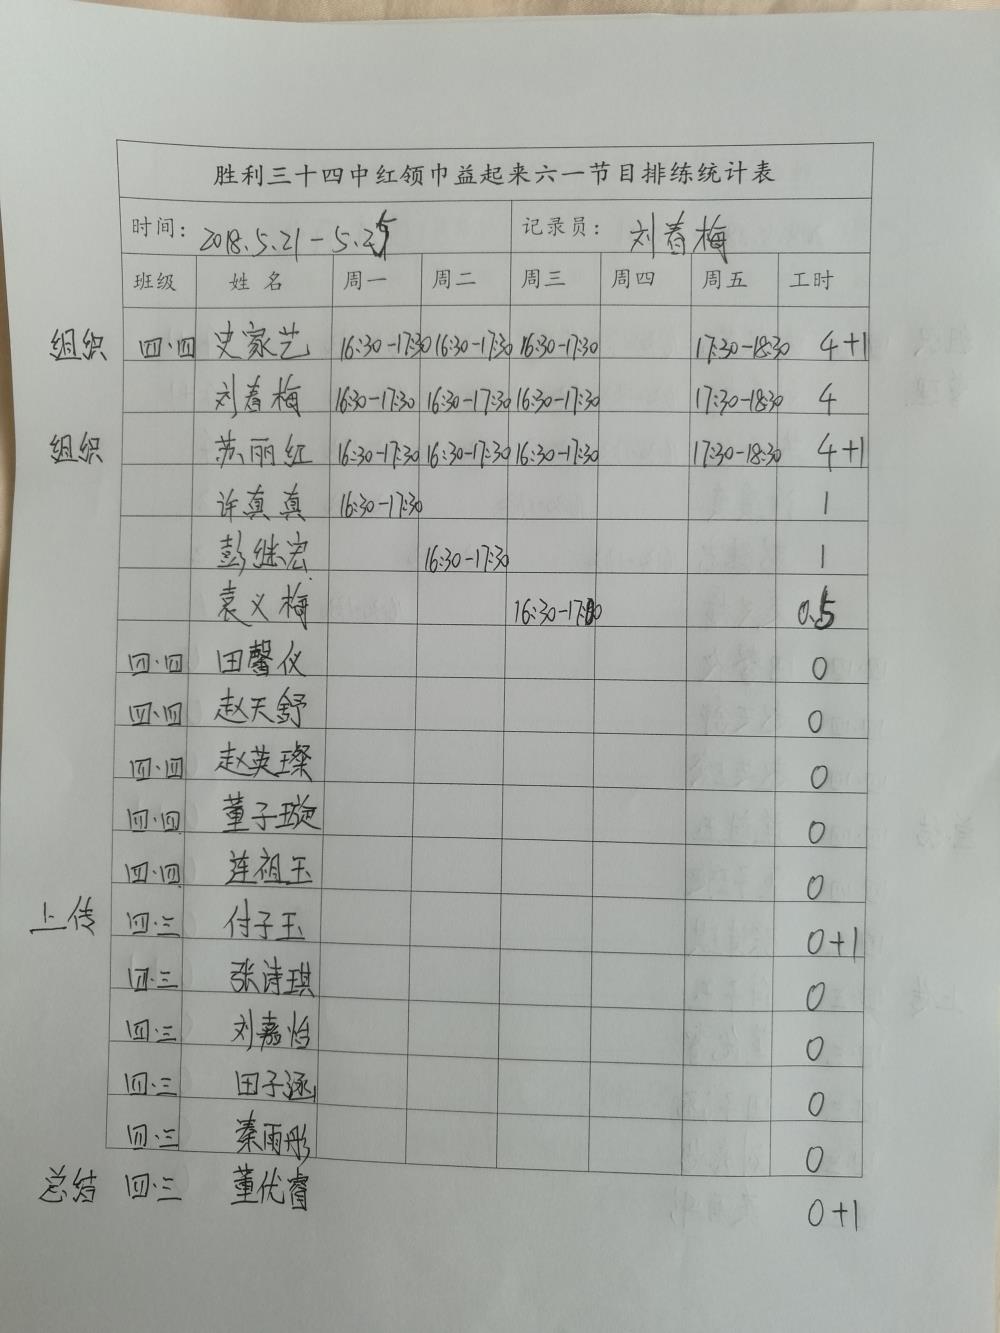 胜利三十四中红领巾益起来六一节目排练统计表
时间: 2018.5.21-5.25 记录员: 刘春梅
班级 姓名 周一 周二 周三 周四 周五 工时
组织 四.四 史家艺 16:30-17:30 16:30-17:30 16:30-17:30 17:30-18:30 4+1
刘春梅 16:30-17:30 16:30-17:30 16:30-17:30 17:30-18:30 4
组织 苏丽红 16:30-17:30 16:30-17:30 16:30-17:30 17:30-18:30 4+1
许真真 16:30-17:30 1
彭继宏 16:30-17:30 1
袁义梅 16:30-17:00 0.5
四.四 田馨仪 0
四.四 赵天舒 0
四.四 赵英璨 0
四.四 董子璇 0
四.四 连祖玉 0
上传 四.三 付子玉 0+1
四.三 张诗琪 0
四.三 刘嘉怡 0
四.三 田子涵 0
四.三 秦雨彤 0
总结 四.三 董优睿 0+1